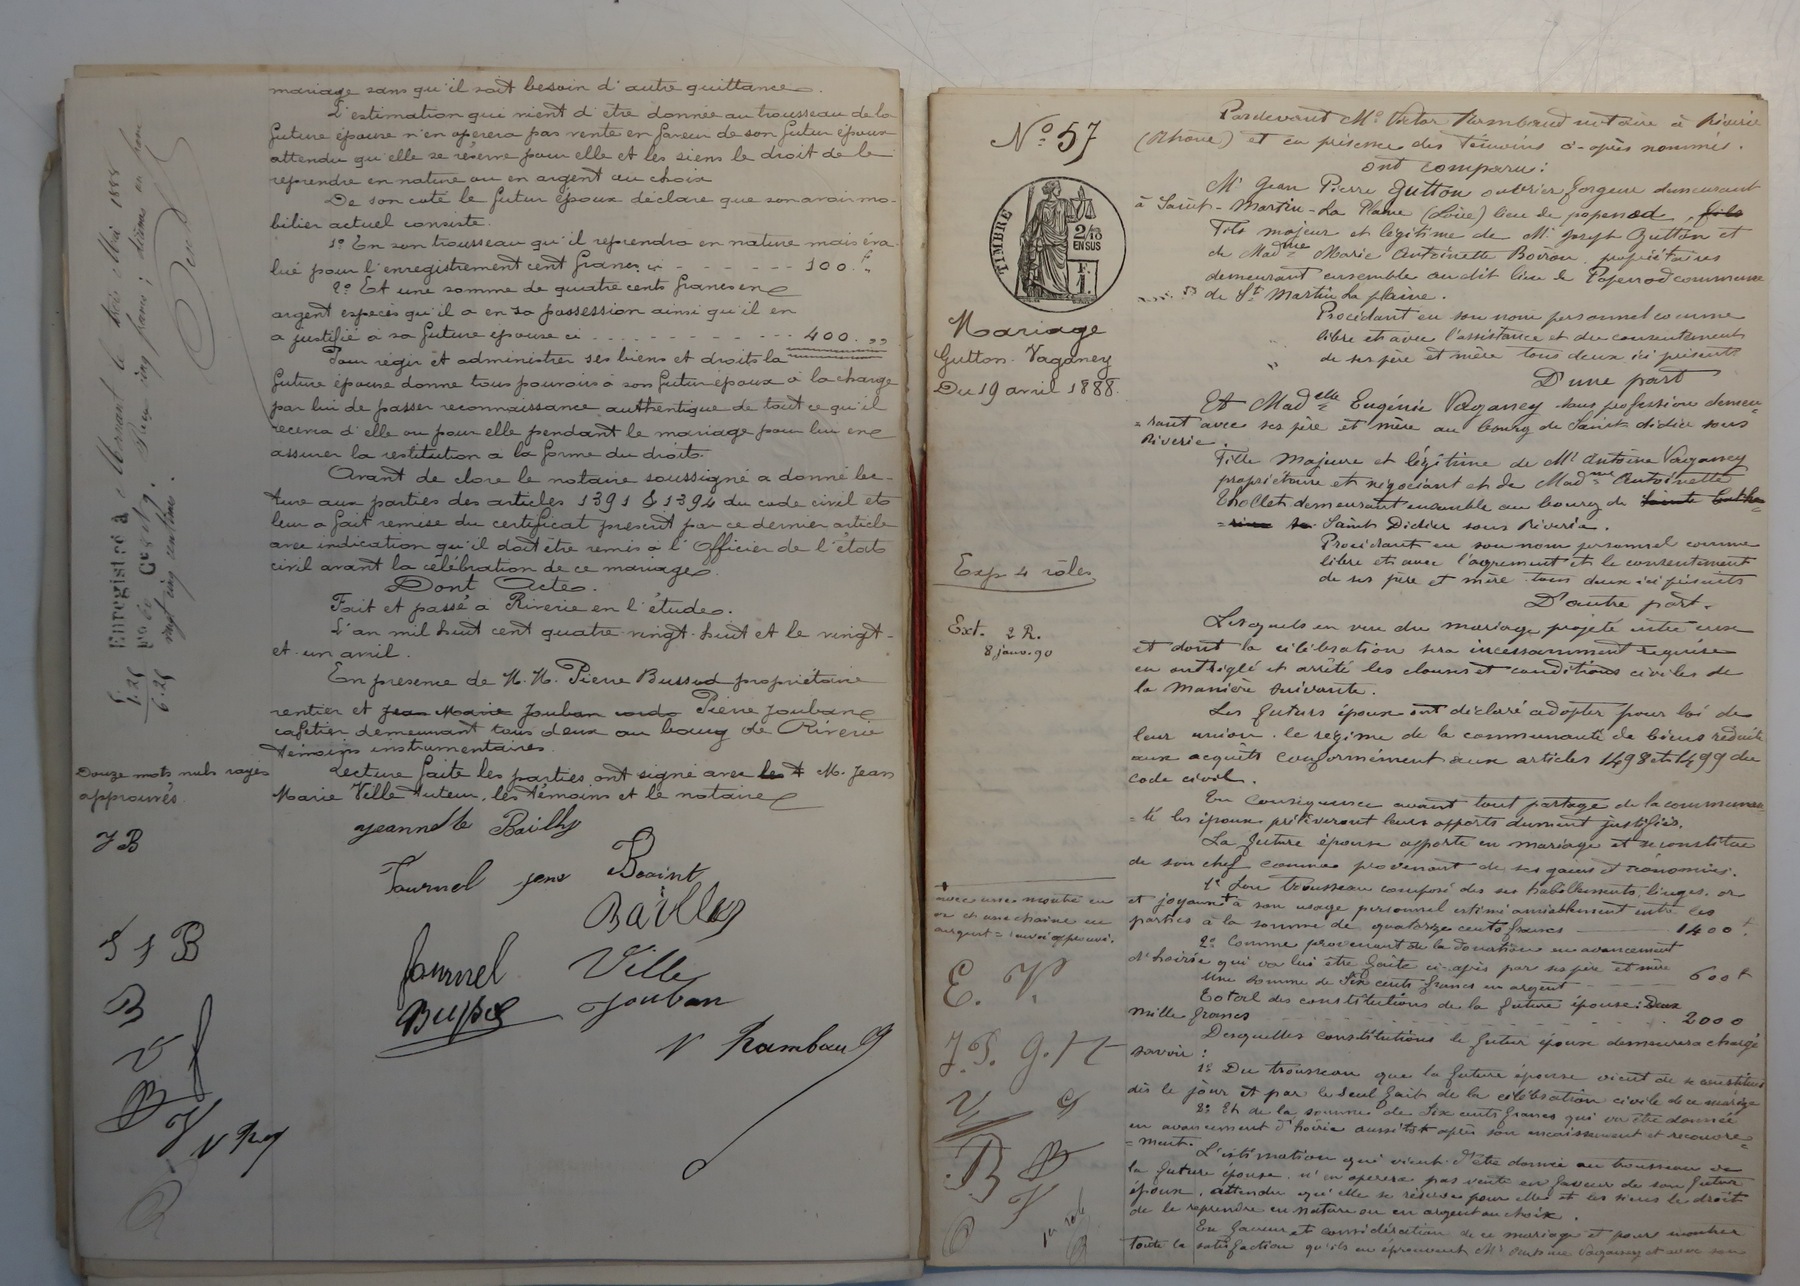 mariage sans qu'il soit besoin d'autre quittance.
L'estimation qui vient d'être donnée au trousseau de la
future épouse n'en opèrera pas vente en faveur de son futur époux
attendu qu'elle se réserve pour elle et les siens le droit de le
reprendre en nature ou en argent au choix
De son coté le futur époux déclare que son avoir mo-
bilier actuel consiste.
1º En son trousseau qu'il reprendra en nature mais éva-
lué pour l'enregistrement cent francs ci - - - - - - 100.f
2º Et une somme de quatre cents francs en
argent espèces qu'il a en sa possession ainsi qu'il en
a justifié à sa future épouse ci . . . . . . . . 400. "
Pour régir et administrer ses biens et droits la
future épouse donne tous pouvoirs à son futur époux à la charge
par lui de passer reconnaissance authentique de tout ce qu'il
recevra d'elle ou pour elle pendant le mariage pour lui en
assurer la restitution a la forme du droit.
Avant de clore le notaire soussigné a donné lec-
ture aux parties des articles 1391 & 1394 du code civil et
leur a fait remise du certificat prescrit par ce dernier article
avec indication qu'il doit être remis à l'Officier de l'état
civil avant la célébration de ce mariage.
Dont Acte.
Fait et passé à Riverie en l'étude.
L'an mil huit cent quatre-vingt-huit et le vingt-
et-un avril.
En présence de M.M. Pierre Bussod propriétaire
rentier et Jean Marie Jouban Pierre Jouban
cafetier demeurant tous deux au bourg de Riverie
témoins instrumentaires.
Lecture faite les parties ont signé avec les M. Jean
Marie Ville tuteur, les témoins et le notaire
Enregistré à Mornant le trois Mai 1888
Fº 60 Cº
Reçu cinq francs; décime un franc
vingt cinq centimes.
5.
1.25
6.25
Douze mots nuls rayés
approuvés.
J B
J J B
B
V
B
J
V Ra
jeannette Bailly
Fournel Boaint
Bailly
fournel Ville
Jouban
V Rambaud
Nº 57
TIMBRE
2/10
EN SUS
1 F.
Mariage
Gutton-Vaganey
Du 19 avril 1888.
Exp 4 rôles
Ext. 2 R.
8 janv. 90
avec une montre en
or et une chaine en
argent = renvoi approuvé.
E. V.
J.P. G.
V G
B B
V
Pardevant Mº Victor Rambaud notaire à Riverie
(Rhône) et en présence des témoins ci-après nommés.
ont comparu:
Mr Jean Pierre Gutton ouvrier forgeur demeurant
à Saint-Martin-La Plaine (Loire) lieu de , fils
Fils majeur et légitime de Mr Joseph Gutton et
de Madme Marie Antoinette Boiron, propriétaires
demeurant ensemble audit lieu de commune
de St Martin La plaine.
Procédant en son nom personnel comme
libre et avec l'assistance et du consentement
de ses père et mère tous deux ici présents
D'une part
Et Madelle Eugénie Vaganey sans profession demeu-
=rant avec ses père et mère au bourg de Saint-didier sous
Riverie.
Fille majeure et légitime de Mr Antoine Vaganey
propriétaire et négociant et de Madme Antoinette
Thollet demeurant ensemble au bourg de Sainte Cathe-
=rine Saint Didier sous Riverie.
Procédant en son nom personnel comme
libre et avec l'agrément et le consentement
de ses père et mère tous deux ici présents
D'autre part.
Lesquels en vue du mariage projeté entre eux
et dont la célébration sera incessamment requise
en ont réglé et arrêté les clauses et conditions civiles de
la manière suivante.
Les futurs époux ont déclaré adopter pour loi de
leur union, le régime de la communauté de biens réduite
aux acquêts conformément aux articles 1498 et 1499 du
code civil.
En conséquence avant tout partage de la communau-
=té les époux prélèveront leurs apports dument justifiés.
La future épouse apporte en mariage et se constitue
de son chef comme provenant de ses gains et économies.
1º Son trousseau composé des ses habillements linges, or
et joyaux à son usage personnel estimé amiablement entre les
parties à la somme de quatorze cents francs 1400 f.
2º Comme provenant de la donation en avancement
d'hoirie qui va lui être faite ci-après par ses père et mère
une somme de Six cents francs en argent 600 f
Total des constitutions de la future épouse: Deux
mille francs . . . . . . . 2000
Desquelles constitutions le futur époux demeurera chargé
savoir:
1º Du trousseau que la future épouse vient de se constituer
dès le jour et par le seul fait de la célébration civile de ce mariage
2º Et de la somme de Six cents francs qui va être donnée
en avancement d'hoirie aussitôt après son encaissement et recouvre-
=ment.
L'estimation qui vient d'être donnée au trousseau de
la future épouse, n'en operera pas vente en faveur de son futur
époux, attendu qu'elle se réserve pour elle et les siens le droit
de le reprendre en nature ou en argent au choix.
En faveur et considération de ce mariage et pour montrer
toute la satisfaction qu'ils en éprouvent Mr Antoine Vaganey et avec son